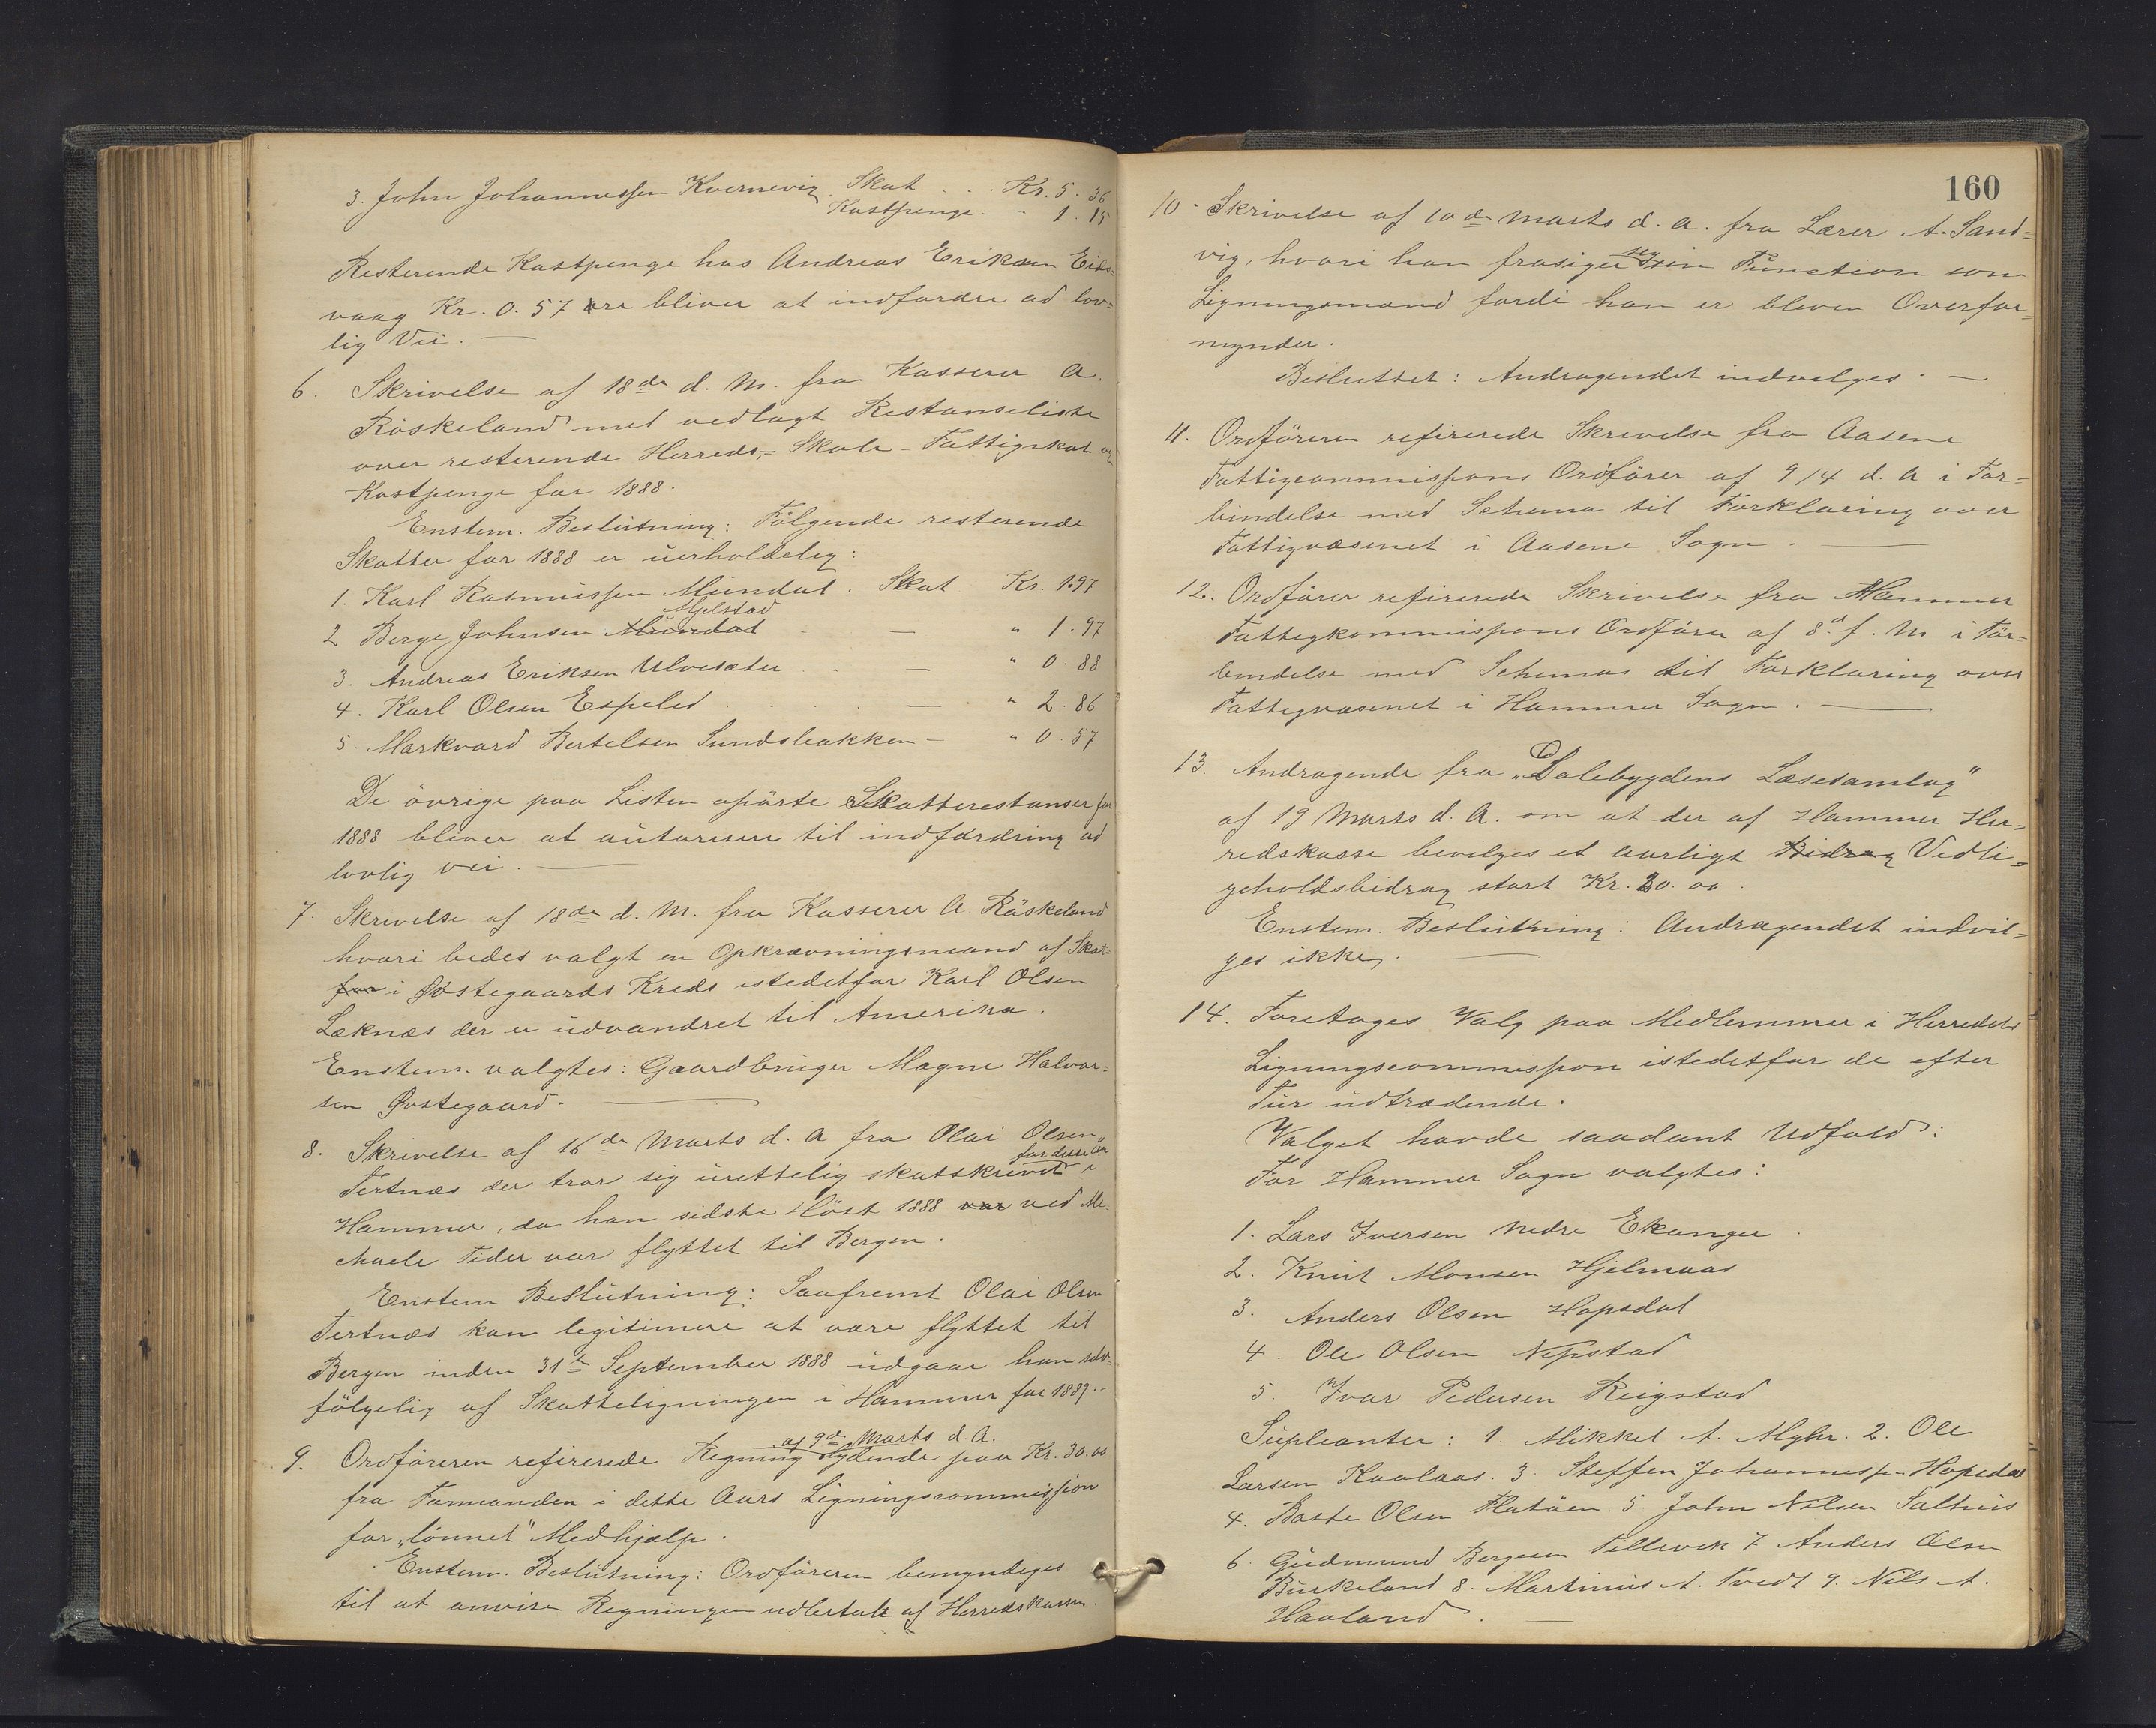 3. John Johannessen Kvernevig. Skat . . . Kr. 5. 36
Kostpenge. " 1. 15
Resterende Kostpenge hos Andreas Eriksen Eids-
vaag Kr. 0.57 øre bliver at indfordre ad lov=
lig Vei. —
6. Skrivelse af 18de d. M. fra Kasserer A.
Röskeland med vedlagt Restanseliste
over resterende Herreds-, Skole- Fattigskat og
Kostpenge for 1888.
Enstem. Beslutning: Følgende resterende
Skatter for 1888 er uerholdelig:
1. Karl Rasmussen Mundal. Skat Kr. 1.97
Mjelstad
2 Berge Johnsen Mundal — " 1.97
3. Andreas Eriksen Ulvesæter . . — " 0.88
4. Karl Olsen Espelid . . . — " 2.86
5. Markvard Bertelsen Sundsbakken — " 0.57
De övrige paa Listen opförte Skatterestanser for
1888 bliver at autorisere til indfordring ad
lovlig vei. —
7. Skrivelse af 18de d. M. fra Kasserer A Röskeland
hvori bedes valgt en Opkrævningsmand af Skat=
for i Østegaards Kreds istedetfor Karl Olsen
Læknæs der er udvandret til Amerika.
Enstem. valgtes: Gaardbruger Magne Halvor=
sen Østegaard. —
8. Skrivelse af 16de Marts d. A fra Olai Olsen
for dette aar
Tertnæs der tror sig urettelig skatskrevet i
Hammer, da han sidste Höst 1888 var ved Mi-
chaeli Tider var flyttet til Bergen.
Enstem Beslutning: Saafremt Olai Olsen
Tertnæs kan legitimere at være flyttet til
Bergen inden 31te September 1888 udgaar han selv=
fölgelig af Skatteligningen i Hammer for 1889.-
af 9de Marts d. A.
9. Ordföreren refererede Regning lydende paa Kr. 30.00
fra Formanden i dette Aars Ligningscommission
for "lönnet" Medhjælp.
Enstem. Beslutning: Ordföreren bemyndiges
til at anvise Regningen udbetalt af Herredskassen.
160
10. Skrivelse af 10de Marts d. a. fra Lærer A. Sand=
sig
vig, hvori han frasiger sin Function som
Ligningsmand fordi han er bleven Overfor=
mynder.
Besluttet: Andragendet indvelges. —
11. Ordföreren refirerede Skrivelse fra Aasene
Fattigcommissions Ordfører af 9/4 d. A i For=
bindelse med Schema til Forklaring over
Fattigvæsenet i Aasene Sogn. —
12. Ordfører refirerede Skrivelse fra Hammer
Fattigkommissions Ordförer af 8d f. M i For=
bindelse med Schemas til Forklaring over
Fattigvæsenet i Hammer Sogn. —
13. Andragende fra "Dalebygdens Læsesamlag"
af 19 Marts d. A. om at der af Hammer Her=
redskasse bevilges et aarligt Bidrag Vedli=
geholdsbidrag stort Kr. 20.00.
Enstem. Beslutning: Andragendet indvil=
ges ikke. —
14. Foretoges Valg paa Medlemmer i Herredets
Ligningscommission istedetfor de efter
Tur udtrædende.
Valget havde saadant Udfald:
For Hammer Sogn valgtes:
1. Lars Iversen Nedre Ekanger
2. Knut Monsen Hjelmaas
3. Anders Olsen Hopsdal
4. Ole Olsen Nepstad
5. Ivar Pedersen Reigstad
Supleanter: 1 Mikkel A. Myhr. 2. Ole
Larsen Kaalaas. 3. Steffen Johannessen Hopsdal
4. Baste Olsen Flatöen 5. John Nilsen Salhus
6. Gudmund Bergesen Tellevik 7 Anders Olsen
Birkeland 8. Martinus A. Tvedt 9. Nils A.
Haaland. —